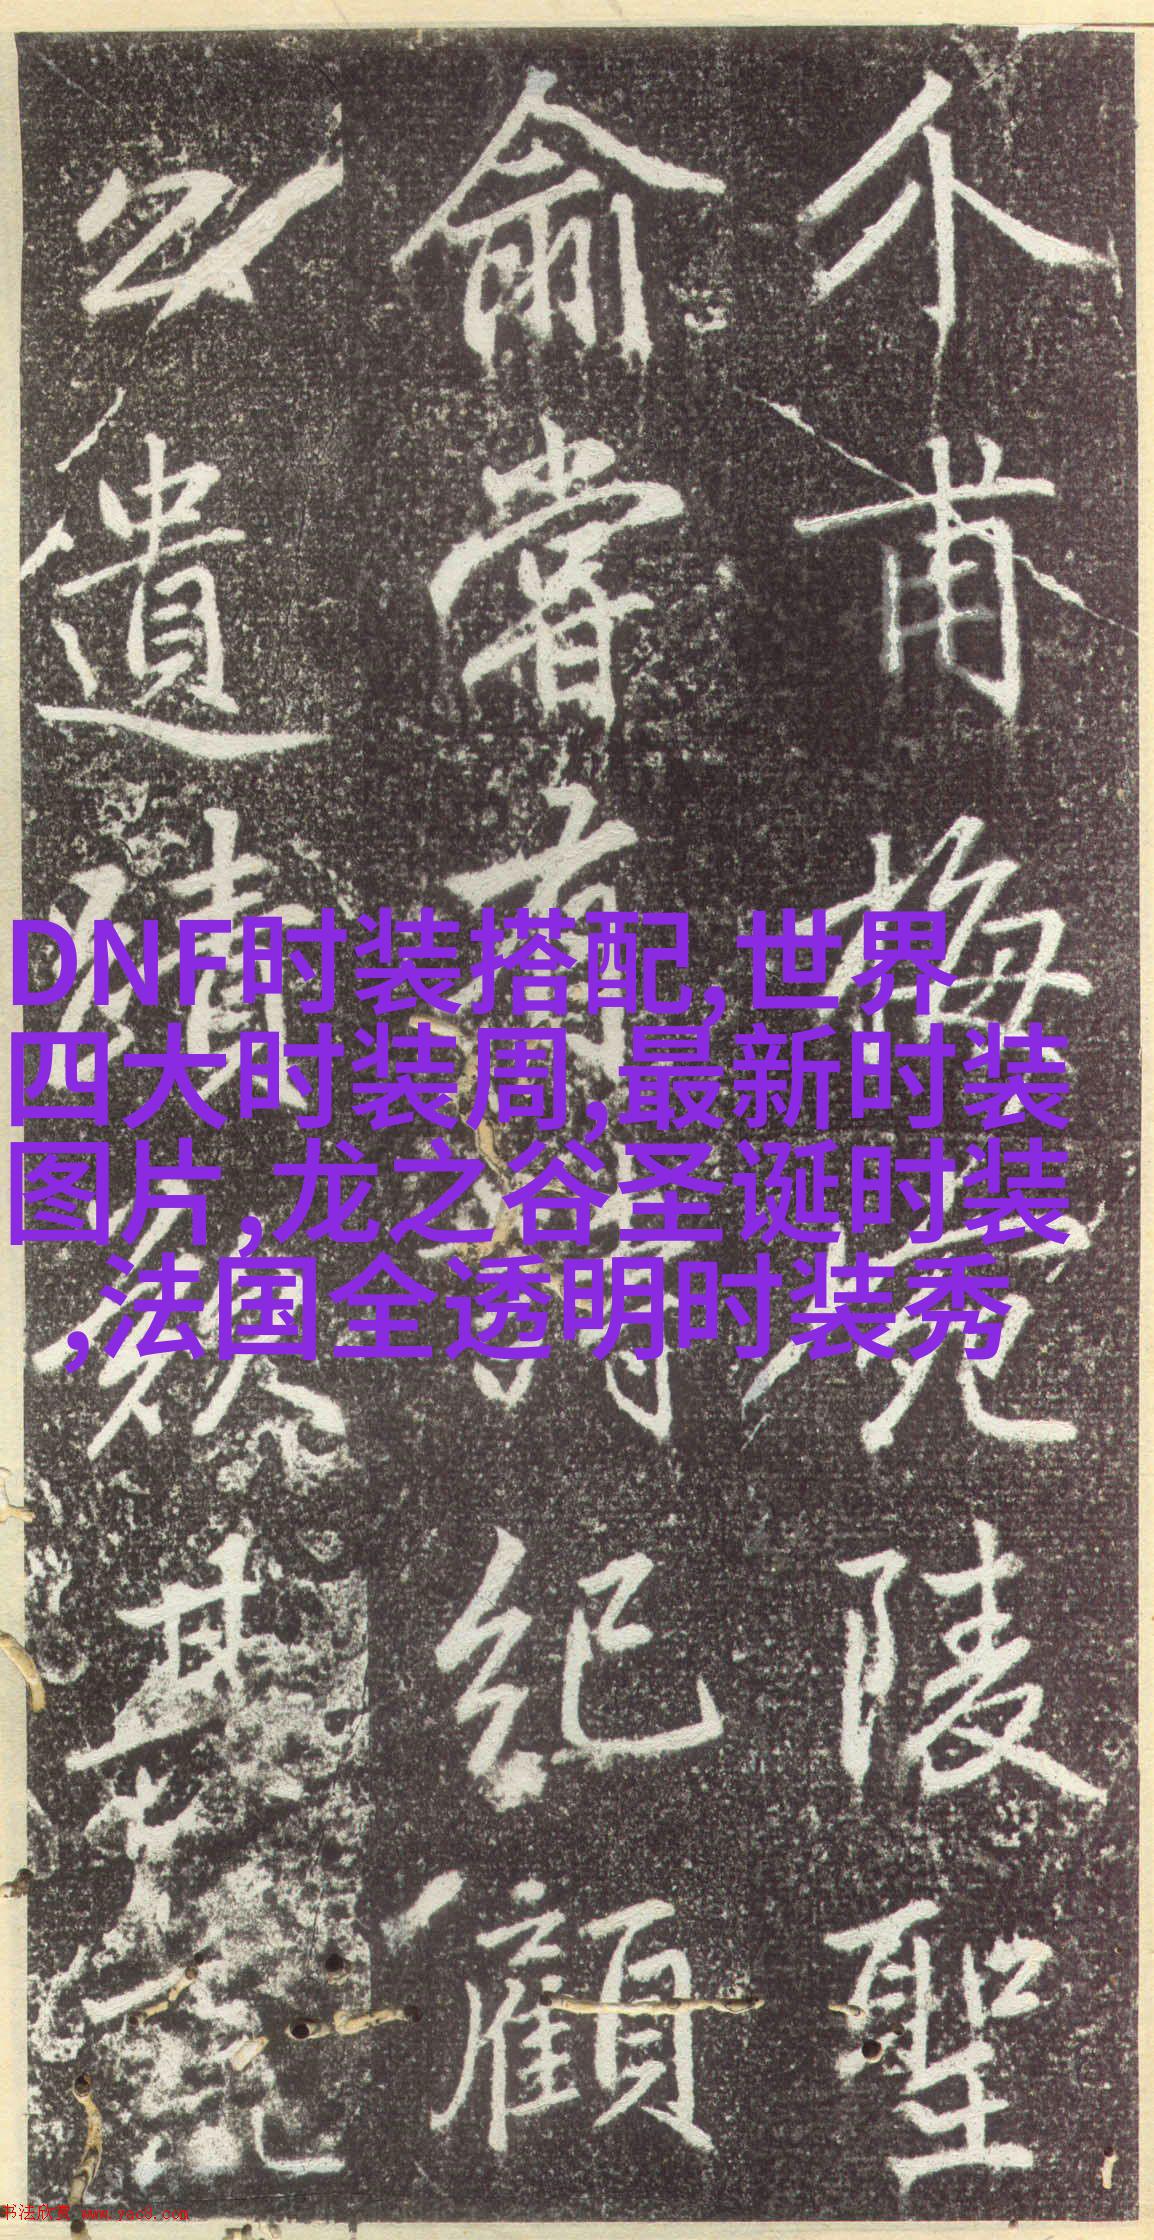 介甫梅宛陵聖
俞嘗有詩紀顧
公遺蹟其
DNF时装搭配,世界
四大时装周,最新时装
图片,龙之谷圣诞时装
,法国全透明时装秀
书法欣赏 www.yac8.com